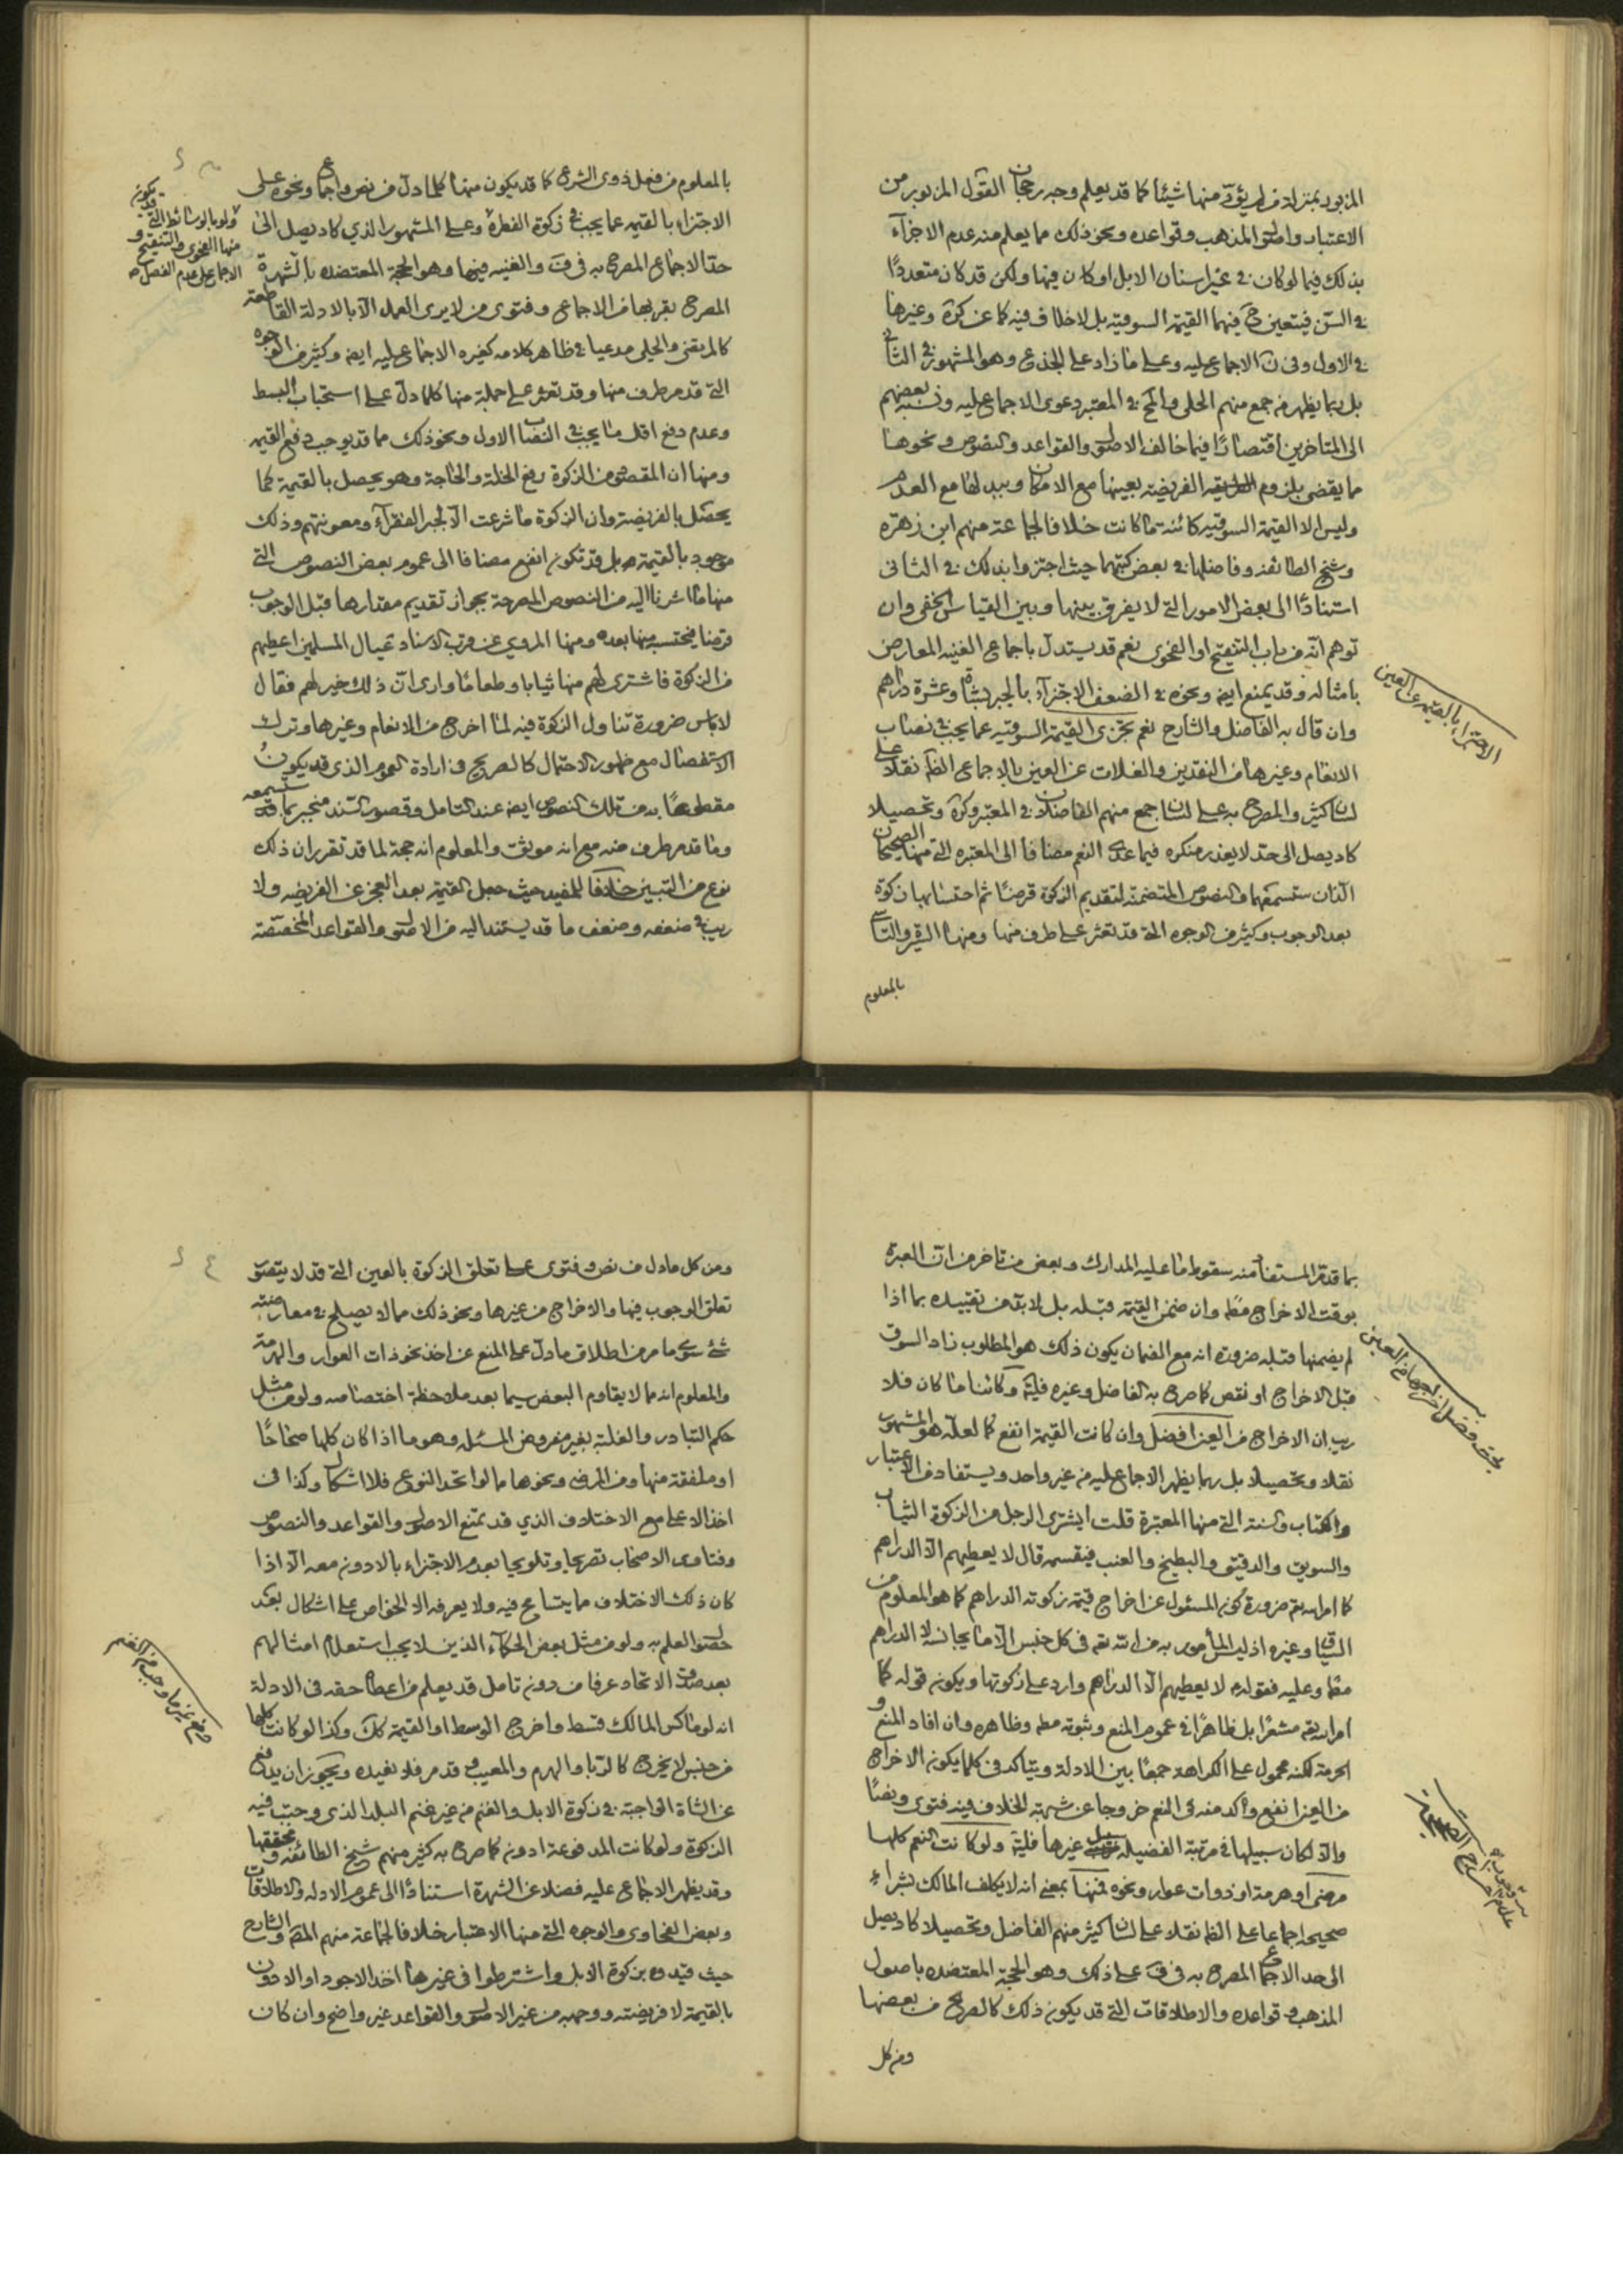 المزبود بمنزلة من لم يؤدّ منها شيئا كما قد يعلم وجه رجحان القول المزبور من
الاعتبار واصول المذهب وقواعده ونحو ذلك مما يعلم منه عدم الاجزاء
بذلك فيما لو كان في غير اسنان الابل او كان فيها ولكن قد كان متعددًا
في السن فيتعين ح فيهما القيمة السوقية بل لا خلاف فيه كما عن كرة وغيرها
في الاول وفي ن الاجماع عليه وعلى ما زاد على الجذع وهو المشهور في الثاني
بل ربما يظهر من جمع منهم الحلي والمحقق في المعتبر دعوى الاجماع عليه ونسبه بعضهم
الى المتاخرين اقتصارًا فيما خالف الاصول والقواعد والنصوص ونحوها
مما يقضى بلزوم الفريضة بعينها مع الامكان وببدلها مع العدم
وليس الا القيمة السوقية كائنة ما كانت خلافا لجماعة منهم ابن زهرة
وشيخ الطائفة وفاضلها في بعض كتبهما حيث اجتزوا بذلك في الثانى
استنادًا الى بعض الامور التي لا يفرق بينها وبين القياس الخفى وان
توهم انّه من باب التنقيح او الفحوى نعم قد يستدل باجماع الغنية المعارض
بامثاله وقد يمنع ايضا ونحوه في الضعف الاجتزاء بالجبر بشاة وعشرة دراهم
وان قال به الفاضل والشارح نعم تجزى القيمة السوقية عما يجب في نصاب
الانعام وغيرها من النقدين والغلات عن العين بالاجماع الظاهر نقلا على
لسان كثير والمصرح به على لسان جمع منهم الفاضلان في المعتبر وكرة وتحصيلا
كاد يصل الى حد لا يعذر منكره فيما عدى النعم مضافا الى المعتبرة التي منها الصحيحان
الذان ستسمعهما والنصوص المتضمنة لتقديم الزكوة قرضًا ثم احتسابها زكوة
بعد الوجوب وكثير من الوجوه التي قد تعثر على طرف منها ومنها السيرة والتاسي
بالمعلوم
الاجتزاء بالقيمة عن العين
بالمعلوم من فعل ذوى الشرع كما قد يكون منها كلما دل من نص واجماع ونحوه على
الاجتزاء بالقيمة عما يجب في زكوة الفطرة وعلى المشهور الذي كاد يصل الى
حد الاجماع المصرح به في ف والغنية فيها وهو الحجة المعتضدة بالشهرة
المصرح بقربها من الاجماع وفتوى من لا يرى العمل الا بالادلة القاطعة
كالمرتضى والحلي مدعيا في ظاهر كلامه كغيره الاجماع عليه ايضا وكثير من الوجوه
التي قد مر طرف منها وقد تعثر على جملة منها كلما دل على استحباب البسط
وعدم دفع اقل ما يجب في النصاب الاول ونحو ذلك مما قد يوجب دفع القيمة
ومنها ان المقصود من الزكوة رفع الخلة والحاجة وهو يحصل بالقيمة كما
يحصل بالفريضة وان الزكوة ما شرعت الا لجبر الفقراء ومعونتهم وذلك
موجود بالقيمة بل قد تكون انفع مضافا الى عموم بعض النصوص التي
منها ما اشرنا اليه من النصوص المصرحة بجواز تقديم مقدارها قبل الوجوب
قرضا فيحتسب منها بعده ومنها المروي عن قرب الاسناد عيال المسلمين اعطيهم
من الزكوة فاشترى لهم منها ثيابا وطعاما وارى ان ذلك خير لهم فقال
لا باس ضرورة تناول الزكوة فيه لما اخرج من الانعام وغيرها وترك
الاستفصال مع ظهور الاحتمال كالصريح في ارادة العموم الذى قد يكون
مقطوعًا به من تلك النصوص ايضا عند التامل وقصور السند منجبر بما قد ستسمعه
وما قد مر طرف منه مع انه موثق والمعلوم انه حجة لما قد تقرر ان ذلك
نوع من التبين خلافا للمفيد حيث جعل القيمة بعد العجز عن الفريضة ولا
ريب في ضعفه وضعف ما قد يستند اليه من الاصول والقواعد المخصصة
قد يكون
ولو بالوسائط التي
منها الفحوى والتنقيح و
الاجماع على عدم الفصل
بما قد مر المستفاد منه سقوط ما عليه المدارك وبعض من تاخر من ان العبرة
بوقت الاخراج مط وان ضمن القيمة قبله بل لا بد من تقييده بما اذا
لم يضمنها قبله ضرورة انه مع الضمان يكون ذلك هو المطلوب زاد السوق
قبل الاخراج او نقص كما صرح به الفاضل وغيره وكائنا ما كان فلا
ريب ان الاخراج من العين افضل وان كانت القيمة انفع كما لعله هو المشهور
نقلا وتحصيلا بل ربما يظهر الاجماع عليه من غير واحد ويستفاد من الاعتبار
والكتاب والسنة التي منها المعتبرة قلت ايشترى الرجل من الزكوة الثياب
والسويق والدقيق والبطيخ والعنب فيقسمه قال لا يعطيهم الا الدراهم
كما امر الله تعالى ضرورة كون المسئول عن اخراج قيمة زكوته الدراهم كما هو المعلوم من
السياق وغيره اذ ليس المأمور به من الله تع في كل جنس الا ما يجانسه لا الدراهم
مط وعليه فقوله لا يعطيهم الا الدراهم وارد على زكوتها ويكون قوله كما
امر الله تع مشعرًا بل ظاهرًا في عموم المنع وثبوته مط وظاهره وان افاد المنع و
الحرمة لكنه محمول على الكراهة جمعًا بين الادلة ويتاكد في كلما يكون الاخراج
من العين انفع وآكد منه في النعم خروجا عن شبهة الخلاف فيه فتوى ونصًا
والا لكان سبيلها في مرتبة الفضيلة سبيل غيرها ولو كانت النعم كلها
مرضى او هرمة او ذوات عوار ونحوه فمنها بمعنى انه لا يكلف المالك بشراء
صحيحة اجماعا على الظاهر نقلا على لسان كثير منهم الفاضل وتحصيلا كاد يصل
الى حد الاجماع المصرح به في ف على ذلك وهو الحجة المعتضدة باصول
المذهب وقواعده والاطلاقات التي قد يكون ذلك كالصريح من بعضها
ومن كل
فضل اخراجها من العين
عدم وجوب اخراج الصحيحة
ومن كل ما دل من نص وفتوى على تعلق الزكوة بالعين التي قد لا يتصور
تعلق الوجوب فيها والاخراج من غيرها ونحو ذلك مما لا يصلح في معارضته
شئ سوى ما مر من اطلاق ما دل على المنع عن اخذ نحو ذات العوار والهرمة
والمعلوم انه مما لا يقاوم البعض سيما بعد ملاحظة اختصاصه ولو من مثل
حكم التبادر والغلبة بغير مفروض المسئلة وهو ما اذا كان كلها صحاحًا
او ملفقة منها ومن المرضى ونحوها مما لو اتحد النوع فلا اشكال وكذا في
اخذ الاعلى مع الاختلاف الذي قد تمنع الاصول والقواعد والنصوص
وفتاوى الاصحاب تصريحا وتلويحا بعدم الاجتزاء بالادون معه الا اذا
كان ذلك الاختلاف مما يتسامح فيه ولا يعرفه الا الخواص على اشكال بعد
حصول العلم به ولو من مثل بعض الحكماء الذين لا يجب استعلام امثالهم
بعد صدق الاتحاد عرفا من دون تامل قد يعلم من اعطا حقه في الادلة
انه لو ماكس المالك قسط واخرج الوسط او القيمة كك وكذا لو كانت كلها
من جنس لا يخرج كالربا والهرم والمعيب وقد مر فلا نعيده ويجوز ان يدفع
عن الشاة الواجبة في زكوة الابل والغنم من غير غنم البلد الذى وجبت فيه
الزكوة ولو كانت المدفوعة ادون كما صرح به كثير منهم شيخ الطائفة ومحققها
وقد يظهر الاجماع عليه فضلا عن الشهرة استنادًا الى عموم الادلة والاطلاقات
وبعض الفحاوى والوجوه التي منها الاعتبار خلافا لجماعة منهم المص والشارح
حيث قيدوه بزكوة الابل واشترطوا في غيرها اخذ الاجود او الادون
بالقيمة لا فريضة ووجهه من غير الاصول والقواعد غير واضح وان كان
دفع غير ما وجب من الغنم